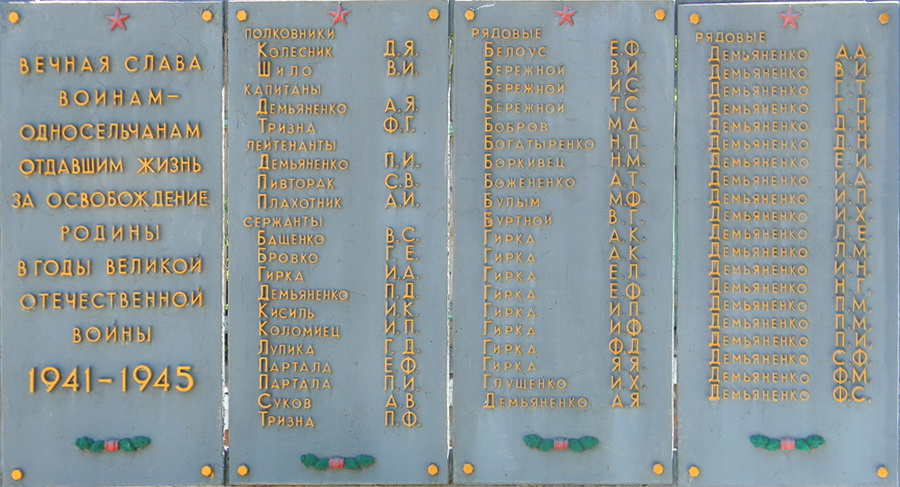 ВЕЧНАЯ СЛАВА
ВОИНАМ–
ОДНОСЕЛЬЧАНАМ
ОТДАВШИМ ЖИЗНЬ
ЗА ОСВОБОЖДЕНИЕ
РОДИНЫ
В ГОДЫ ВЕЛИКОЙ
ОТЕЧЕСТВЕННОЙ
ВОЙНЫ
1941–1945
ПОЛКОВНИКИ
КОЛЕСНИК Д.Я.
ШИЛО В.И.
КАПИТАНЫ
ДЕМЬЯНЕНКО А.Я.
ТРИЗНА Ф.Г.
ЛЕЙТЕНАНТЫ
ДЕМЬЯНЕНКО П.И.
ПИВТОРАК С.В.
ПЛАХОТНИК А.И.
СЕРЖАНТЫ
БАЩЕНКО В.С.
БРОВКО Г.Е.
ГИРКА И.А.
ДЕМЬЯНЕНКО П.Д.
КИСИЛЬ И.К.
КОЛОМИЕЦ И.П.
ЛУПИКА Г.Д.
ПАРТАЛА Е.Ф.
ПАРТАЛА П.И.
СУКОВ А.В.
ТРИЗНА П.Ф.
РЯДОВЫЕ
БЕЛОУС Е.Ф.
БЕРЕЖНОЙ В.И.
БЕРЕЖНОЙ И.С.
БЕРЕЖНОЙ Т.С.
БОБРОВ М.А.
БОГАТЫРЕНКО Н.П.
БОРКИВЕЦ Н.М.
БОЖЕНЕНКО А.Т.
БУЛЫМ М.Ф.
БУРТНОЙ В.Г.
ГИРКА А.К.
ГИРКА А.К.
ГИРКА Е.Л.
ГИРКА Е.Ф.
ГИРКА И.П.
ГИРКА И.Ф.
ГИРКА Ф.Д.
ГИРКА Я.Я.
ГЛУЩЕНКО И.Х.
ДЕМЬЯНЕНКО А.Я.
РЯДОВЫЕ
ДЕМЬЯНЕНКО А.А.
ДЕМЬЯНЕНКО В.И.
ДЕМЬЯНЕНКО Г.Т.
ДЕМЬЯНЕНКО Г.П.
ДЕМЬЯНЕНКО Д.Н.
ДЕМЬЯНЕНКО Д.Н.
ДЕМЬЯНЕНКО Е.И.
ДЕМЬЯНЕНКО И.А.
ДЕМЬЯНЕНКО И.П.
ДЕМЬЯНЕНКО И.Х.
ДЕМЬЯНЕНКО Л.Е.
ДЕМЬЯНЕНКО Л.М.
ДЕМЬЯНЕНКО И.Н.
ДЕМЬЯНЕНКО Н.Г.
ДЕМЬЯНЕНКО П.М.
ДЕМЬЯНЕНКО П.М.
ДЕМЬЯНЕНКО П.И.
ДЕМЬЯНЕНКО С.Ф.
ДЕМЬЯНЕНКО Ф.М.
ДЕМЬЯНЕНКО Ф.С.